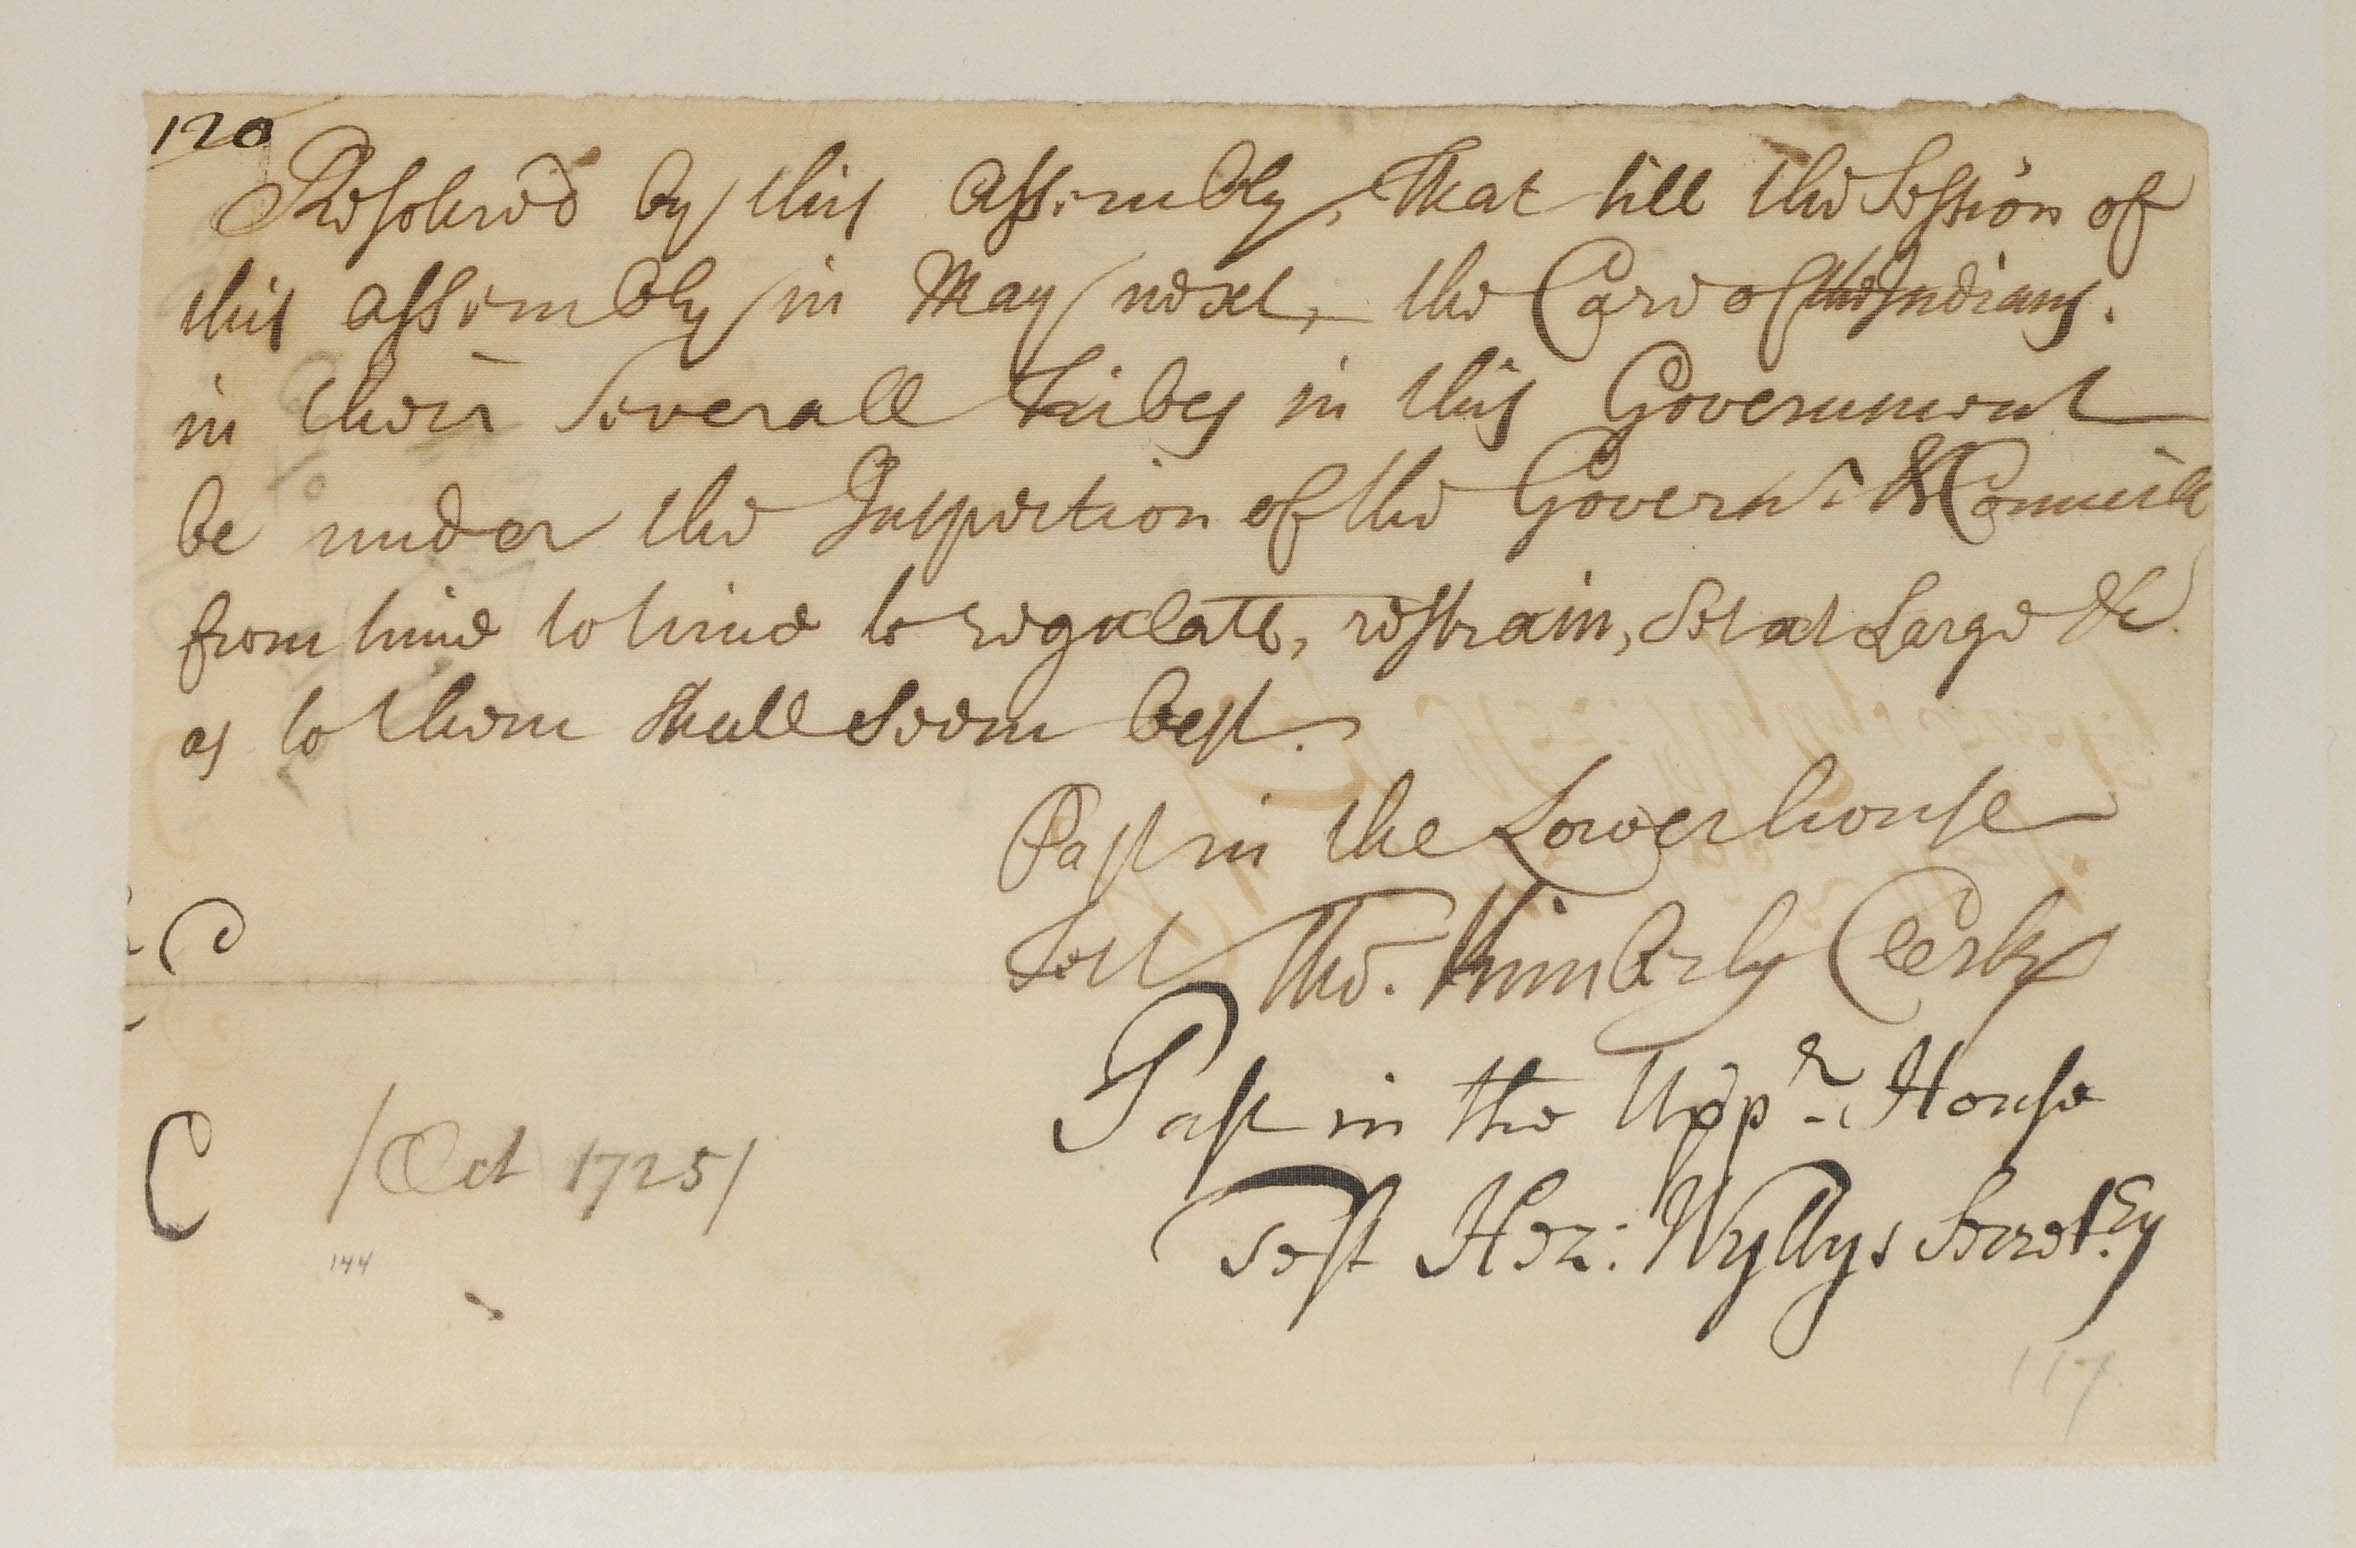 120
Resolved by this assembly, That till the Session of
this assembly in May next, the Care of the Indians.
in their severall Tribes in this Government
be under the Inspection of the Govern.r & Councill
from time to time to regulate, restrain, Set at Large &c
as to them shall Seem best.
Past in the Lowerhouse
Test Tho. Kimberly Clerk
Past in the Uppr. House
Test Hez: Wyllys Secret.ry
C
/Oct 1725/
144
117